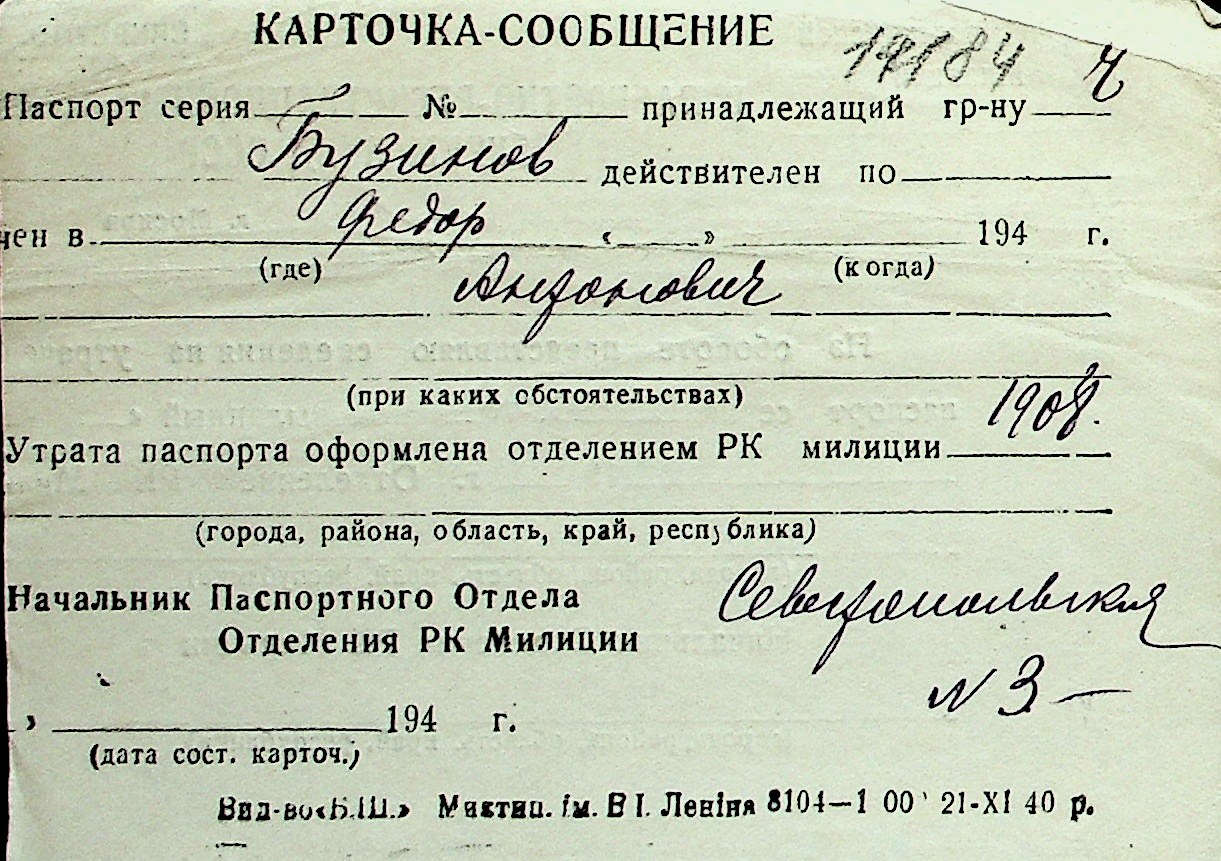 КАРТОЧКА-СООБЩЕНИЕ
Паспорт серия № принадлежащий гр-ну
Бузинов действителен по
чен в Федор « » 194 г.
(где) Антонович (когда)
(при каких обстоятельствах)
1908.
Утрата паспорта оформлена отделением РК милиции
(города, района, область, край, республика)
Начальник Паспортного Отдела
Севастопольская
Отделения РК Милиции
№ 3 —
» 194 г.
(дата сост. карточ.)
Вид-во «Б.Ш.» ім. В І. Леніна 8104—1 00 21-XI 40 р.